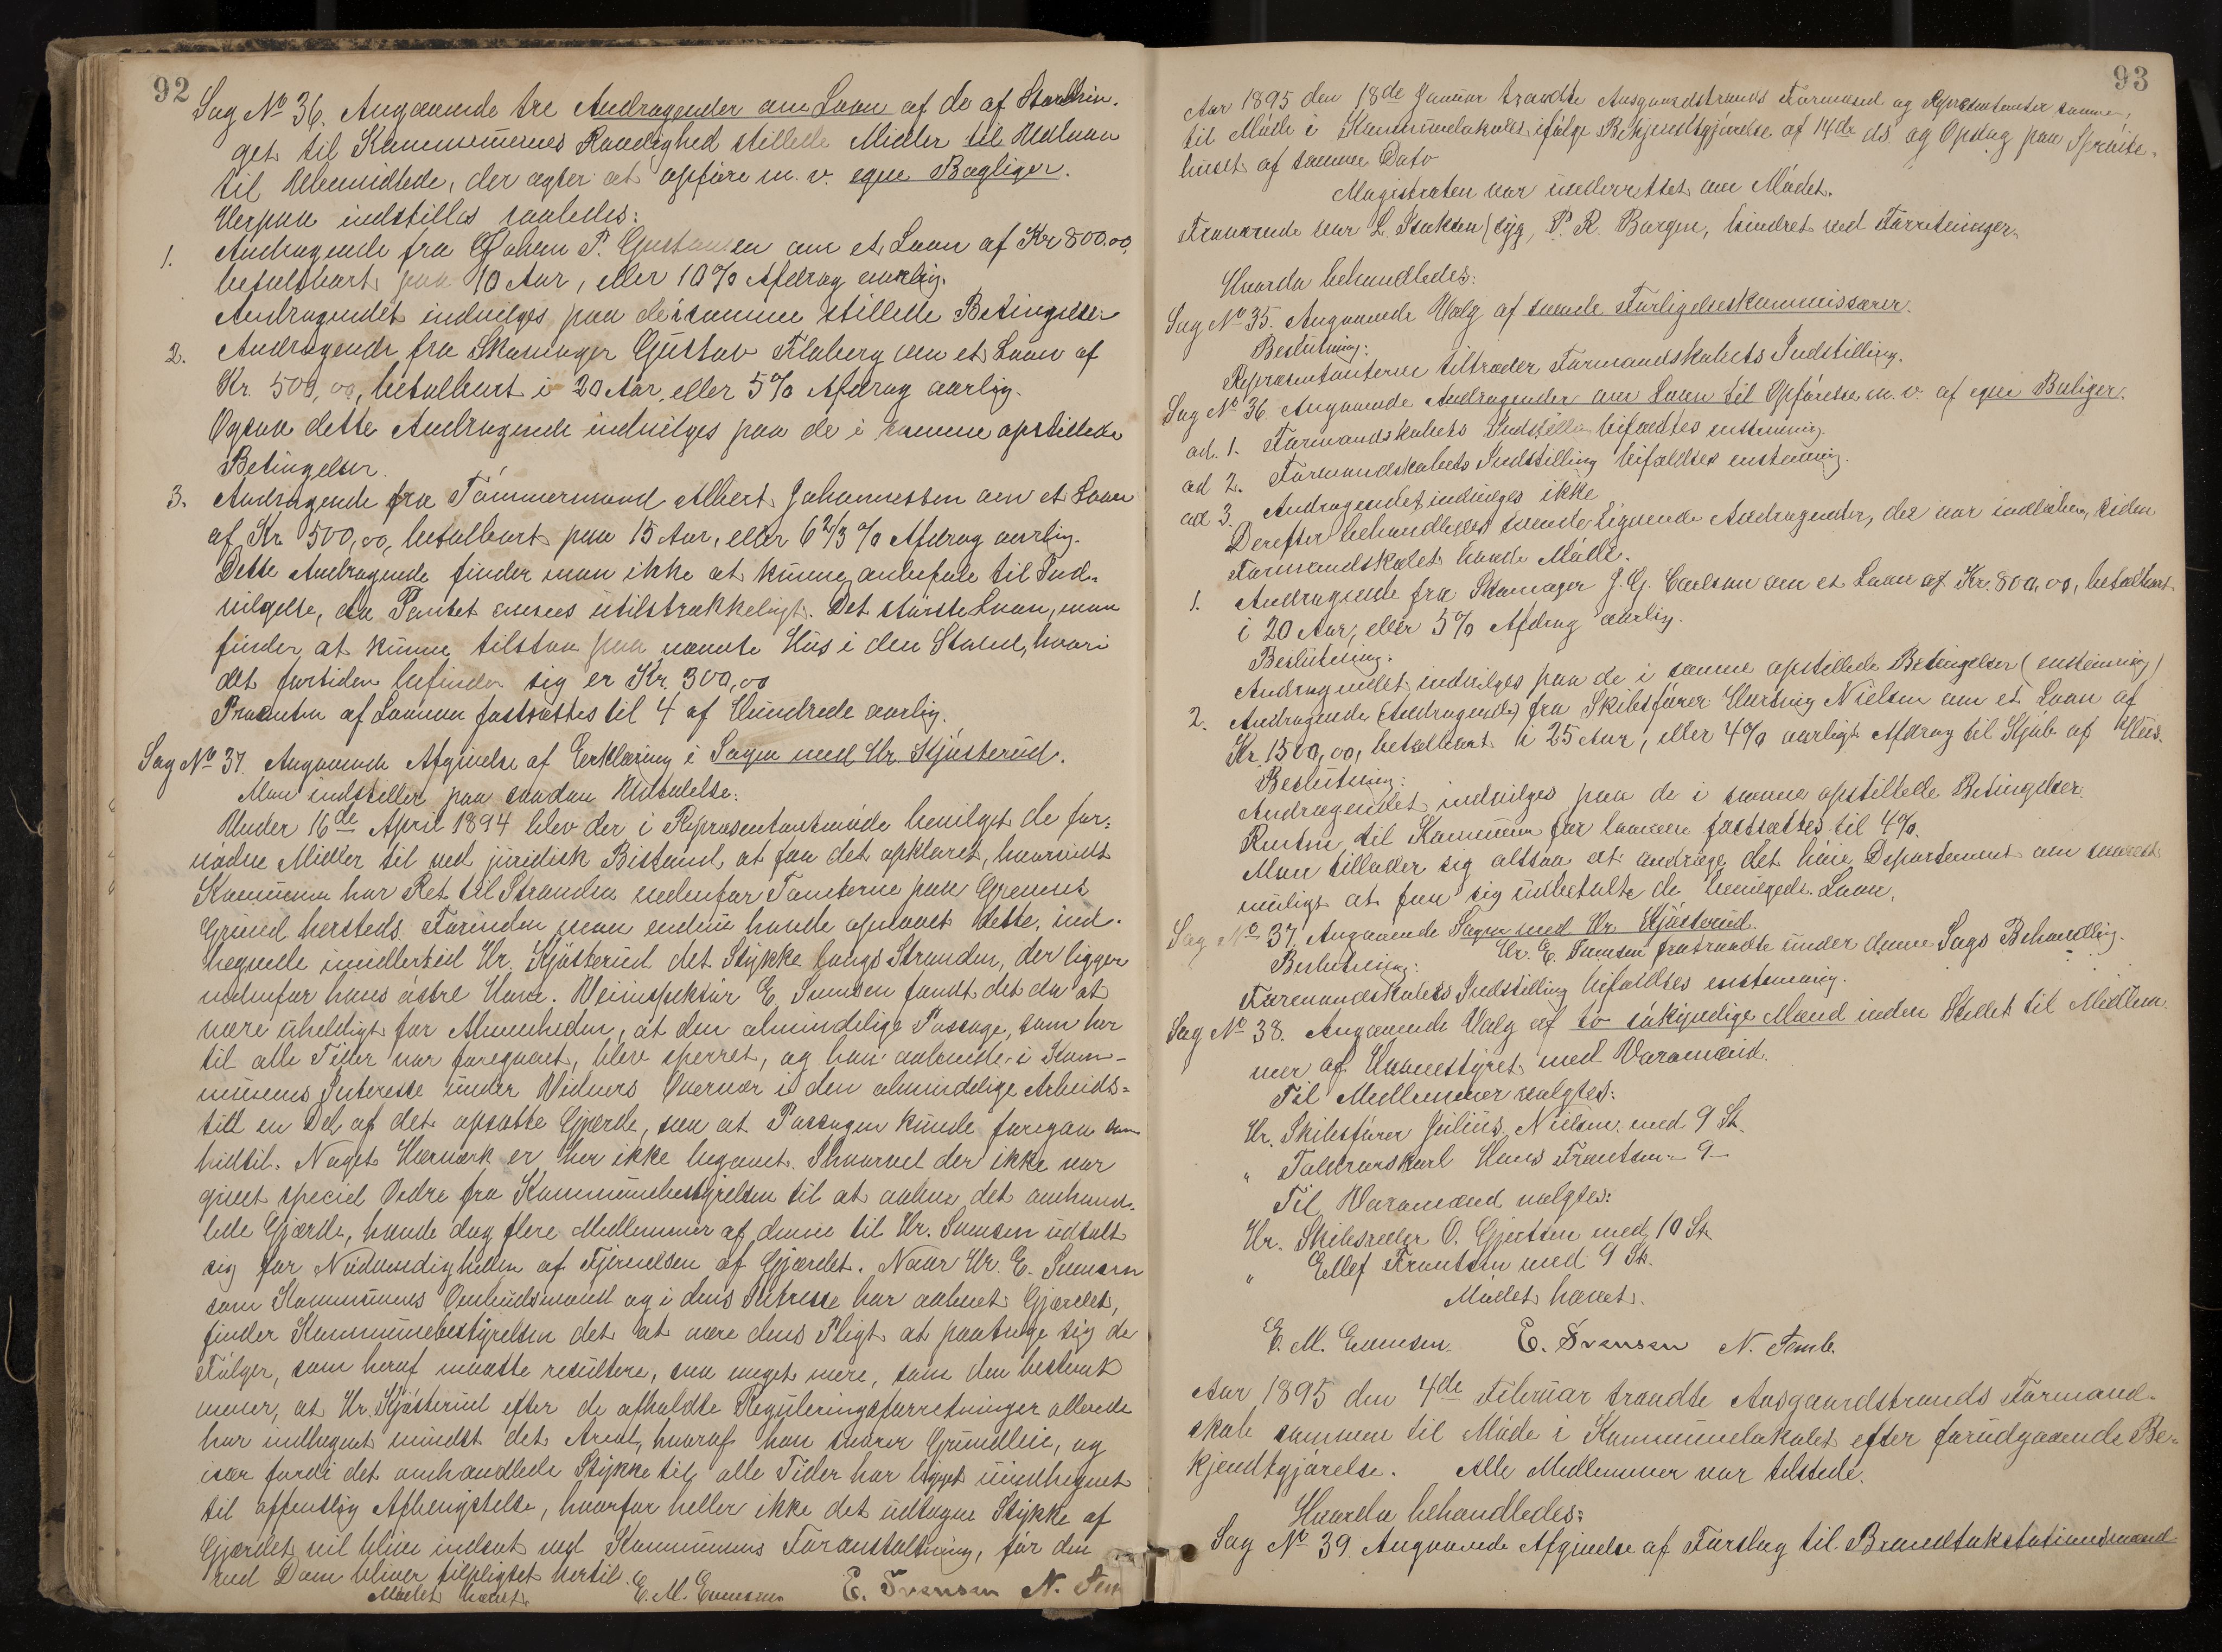 92
Sag No 36. Angaaende tre Andragender om Laan af de af Storthin-
get til Kommunernes Raadighed stillede Midler til Udlaan
til Ubemidlede, der agter at opføre m. v. egne Boliger.
Herpaa indstilles saaledes:
1. Andragende fra Johan P. Gustavsen om et Laan af Kr 800.00,
betalbart paa 10 Aar, eller 10% Afdrag aarlig.
Andragendet indvilges paa de i samme stillede Betingelser
2. Andragende fra Skomager Gustav Floberg om et Laan af
Kr. 500,00, betalbart i 20 Aar, eller 5% Afdrag aarlig.
Ogsaa dette Andragende indvilges paa de i samme opstillede
Betingelser.
3. Andragende fra Tømmermand Albert Johannessen om et Laan
af Kr. 500,00, betalbart paa 15 Aar, eller 6 2/3 % Afdrag aarlig.
Dette Andragende finder man ikke at kunne anbefale til Ind-
vilgelse, da Pantet ansees utilstrækkeligt. Det største Laan, man
finder at kunne tilstaa paa nævnte Hus i den Stand, hvori
det fortiden befinder sig er Kr. 300,00
Procenten af Laanene fastsættes til 4 af Hundrede aarlig.
Sag No 37. Angaaende Afgivelse af Erklæring i Sagen med Hr. Kjøsterud.
Man indstiller paa saadan Udtalelse:
Under 16de April 1894 blev der i Repræsentantmøde bevilget de for-
nødne Midler til ved juridisk Bistand at faa det opklaret, hvorvidt
Kommunen har Ret til Stranden nedenfor Tomterne paa Grennes
Grund hersteds. Forinden man endnu havde oplevet dette, ind-
hegnede imidlertid Hr. Kjøsterud det Stykke langs Stranden, der ligger
nedenfor hans østre Have. Veiinspektør E. Svensen fandt det da at
være uheldigt for Almenheden, at den almindelige Passage, som her
til alle Tider var foregaaet, blev sperret, og han aabnede i Kom-
munens Interesse under Vidners Overvær i den almindelige Arbeids-
tid en Del af det opsatte Gjærde, saa at Passagen kunde foregaa som
hidtil. Noget Hærværk er her ikke begaaet. Skjøndt der ikke var
givet speciel Ordre fra Kommunebestyrelsen til at aabne det omhand-
lede Gjærde, havde dog flere Medlemmer af denne til Hr. Svensen udtalt
sig for Nødvendigheden af Fjernelsen af Gjærdet. Naar Hr. E. Svensen
som Kommunens Ombudsmand og i dens Interesse har aabnet Gjærdet,
finder Kommunebestyrelsen det at være dens Pligt at paatage sig de
Følger, som heraf maatte resultere, saa meget mere, som den bestemt
mener, at Hr. Kjøsterud efter de afholdte Reguleringsforretninger allerede
har indhegnet mindst det Areal, hvoraf han svarer Grundleie, og
især fordi det omhandlede Stykke til alle Tider har ligget uindhegnet
til offentlig Afbenyttelse, hvorfor heller ikke det udtagne Stykke af
Gjærdet vil blive indsat ved Kommunens Foranstaltning, før den
ved Dom bliver tilpligtet hertil.
Mødet hævet. E. M. Evensen E. Svensen N.
93
Aar 1895 den 18de Januar traadte Aasgaardstrands Formænd og Repræsentanter sammen
til Møde i Kommunelokalet ifølge Bekjendtgjørelse af 14de ds. og Opslag paa Sprøite-
huset af samme Dato
Magistraten var underrettet om Mødet.
Fraværende var L. Isaksen (syg, P. R. Borgen, hindret ved Forretninger.
Hvorda behandledes:
Sag No 35. Angaaende Valg af tvende Forligelseskommissærer.
Beslutning:
Repræsentanterne tiltræder Formandskabets Indstilling.
Sag No 36. Angaaende Andragender om Laan til Opførelse m. v. af egne Boliger.
ad. 1. Formandskabets Indstilling bifaldtes enstemmig.
ad 2. Formandskabets Indstilling bifaldtes enstemmig.
ad 3. Andragendet indvilges ikke
Derefter behandledes tvende lignende Andragender, der var indløbne, siden
Formandskabet havde Møde.
1. Andragende fra Skomager J. G. Carlson om et Laan af Kr. 800,00, betalbart
i 20 Aar, eller 5% Afdrag aarlig.
Beslutning:
Andragendet indvilges paa de i samme opstillede Betingelser (enstemmig)
2. Andragende (Andragende) fra Skibsfører Hartvig Nielsen om et Laan af
Kr. 1500,00, betalbart i 25 Aar, eller 4% aarligt Afdrag til Kjøb af Hus.
Beslutning:
Andragendet indvilges paa de i samme opstillede Betingelser.
Renten til Kommunen for laanene fastsættes til 4%.
Man tillader sig altsaa at andrage det høie Departement om snarest
muligt at faa sig udbetalte de bevilgede Laan.
Sag No 37. Angaaende Sagen med Hr. Kjøsterud.
Beslutning: Hr. E. Svensen fratraadte under denne Sags Behandling.
Formandskabets Indstilling bifaldtes enstemmig.
Sag No 38. Angaaende Valg af to søkyndige Mænd inden Stedet til Medlem-
mer af Havnestyret med Varamænd.
Til Medlemmer valgtes:
Hr. Skibsfører Julius Nielsen med 9 St.
" Toldrorskarl Hans Frantsen – 9 –
Til Varamænd valgtes:
Hr. Skibsreder O. Gjertsen med 10 St.
" Ellef Frantsen med 9 St.
Mødet hævet.
E. M. Evensen. E. Svensen N.
Aar 1895 den 4de Februar traadte Aasgaardstrands Formand-
skab sammen til Møde i Kommunelokalet efter forudgaaende Be-
kjendtgjørelse. Alle Medlemmer var tilstede.
Hvorda behandledes:
Sag No 39. Angaaende Afgivelse af Forslag til Brandtakstationsmænd